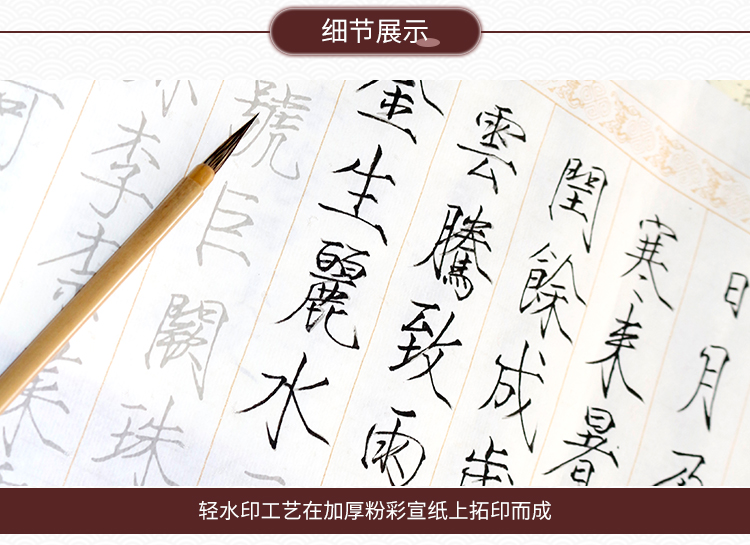 细节展示
日月
寒来暑
閏餘成歲
雲騰致雨
金生麗水
號巨闕珠
李柰菜
河
轻水印工艺在加厚粉彩宣纸上拓印而成